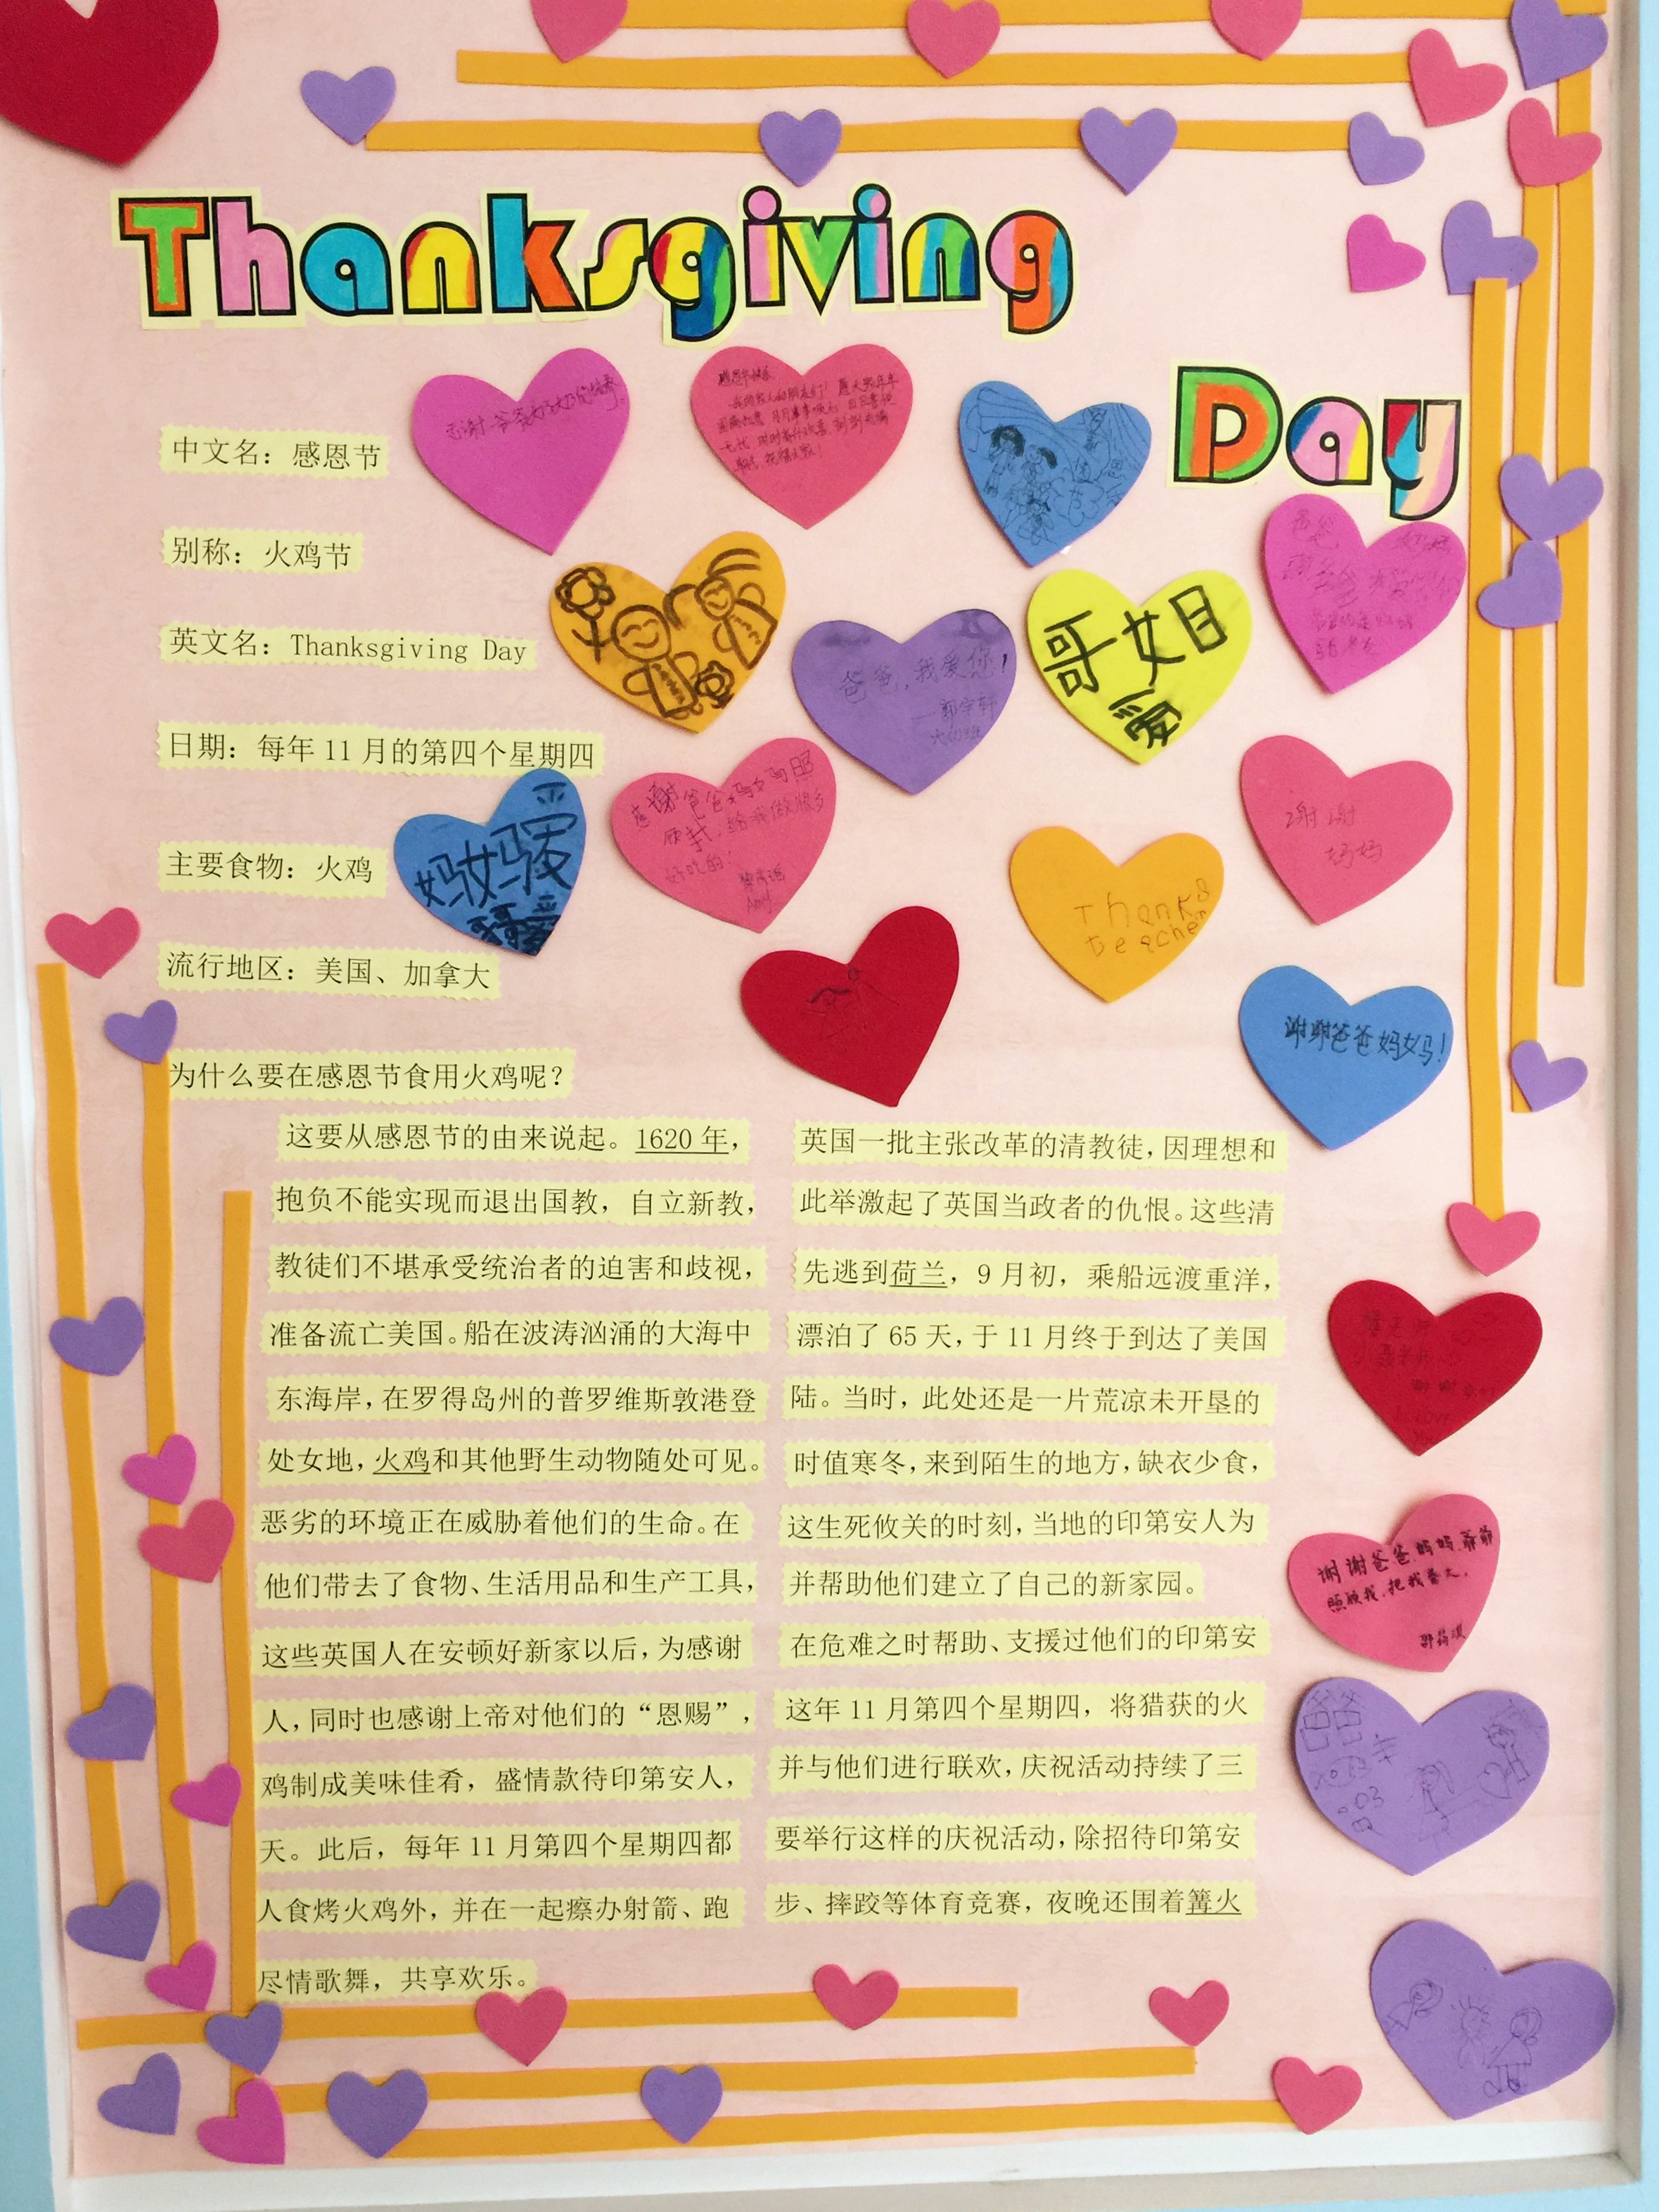 Thanksgiving
Day
中文名：感恩节
别称：火鸡节
英文名：Thanksgiving Day
日期：每年 11 月的第四个星期四
主要食物：火鸡
流行地区：美国、加拿大
爸爸，我爱你！
谢谢
妈妈
Thanks
teacher
谢谢爸爸妈妈！
感谢爸爸妈妈照
顾我，给我做很多
好吃的！
Amy
谢谢爸爸妈妈爷爷
照顾我，把我养大。
为什么要在感恩节食用火鸡呢？
这要从感恩节的由来说起。1620 年，英国一批主张改革的清教徒，因理想和
抱负不能实现而退出国教，自立新教，此举激起了英国当政者的仇恨。这些清
教徒们不堪承受统治者的迫害和歧视，先逃到荷兰，9 月初，乘船远渡重洋，
准备流亡美国。船在波涛汹涌的大海中漂泊了 65 天，于 11 月终于到达了美国
东海岸，在罗得岛州的普罗维斯敦港登陆。当时，此处还是一片荒凉未开垦的
处女地，火鸡和其他野生动物随处可见。时值寒冬，来到陌生的地方，缺衣少食，
恶劣的环境正在威胁着他们的生命。在这生死攸关的时刻，当地的印第安人为
他们带去了食物、生活用品和生产工具，并帮助他们建立了自己的新家园。
这些英国人在安顿好新家以后，为感谢在危难之时帮助、支援过他们的印第安
人，同时也感谢上帝对他们的“恩赐”，这年 11 月第四个星期四，将猎获的火
鸡制成美味佳肴，盛情款待印第安人，并与他们进行联欢，庆祝活动持续了三
天。此后，每年 11 月第四个星期四都要举行这样的庆祝活动，除招待印第安
人食烤火鸡外，并在一起瘵办射箭、跑步、摔跤等体育竞赛，夜晚还围着篝火
尽情歌舞，共享欢乐。